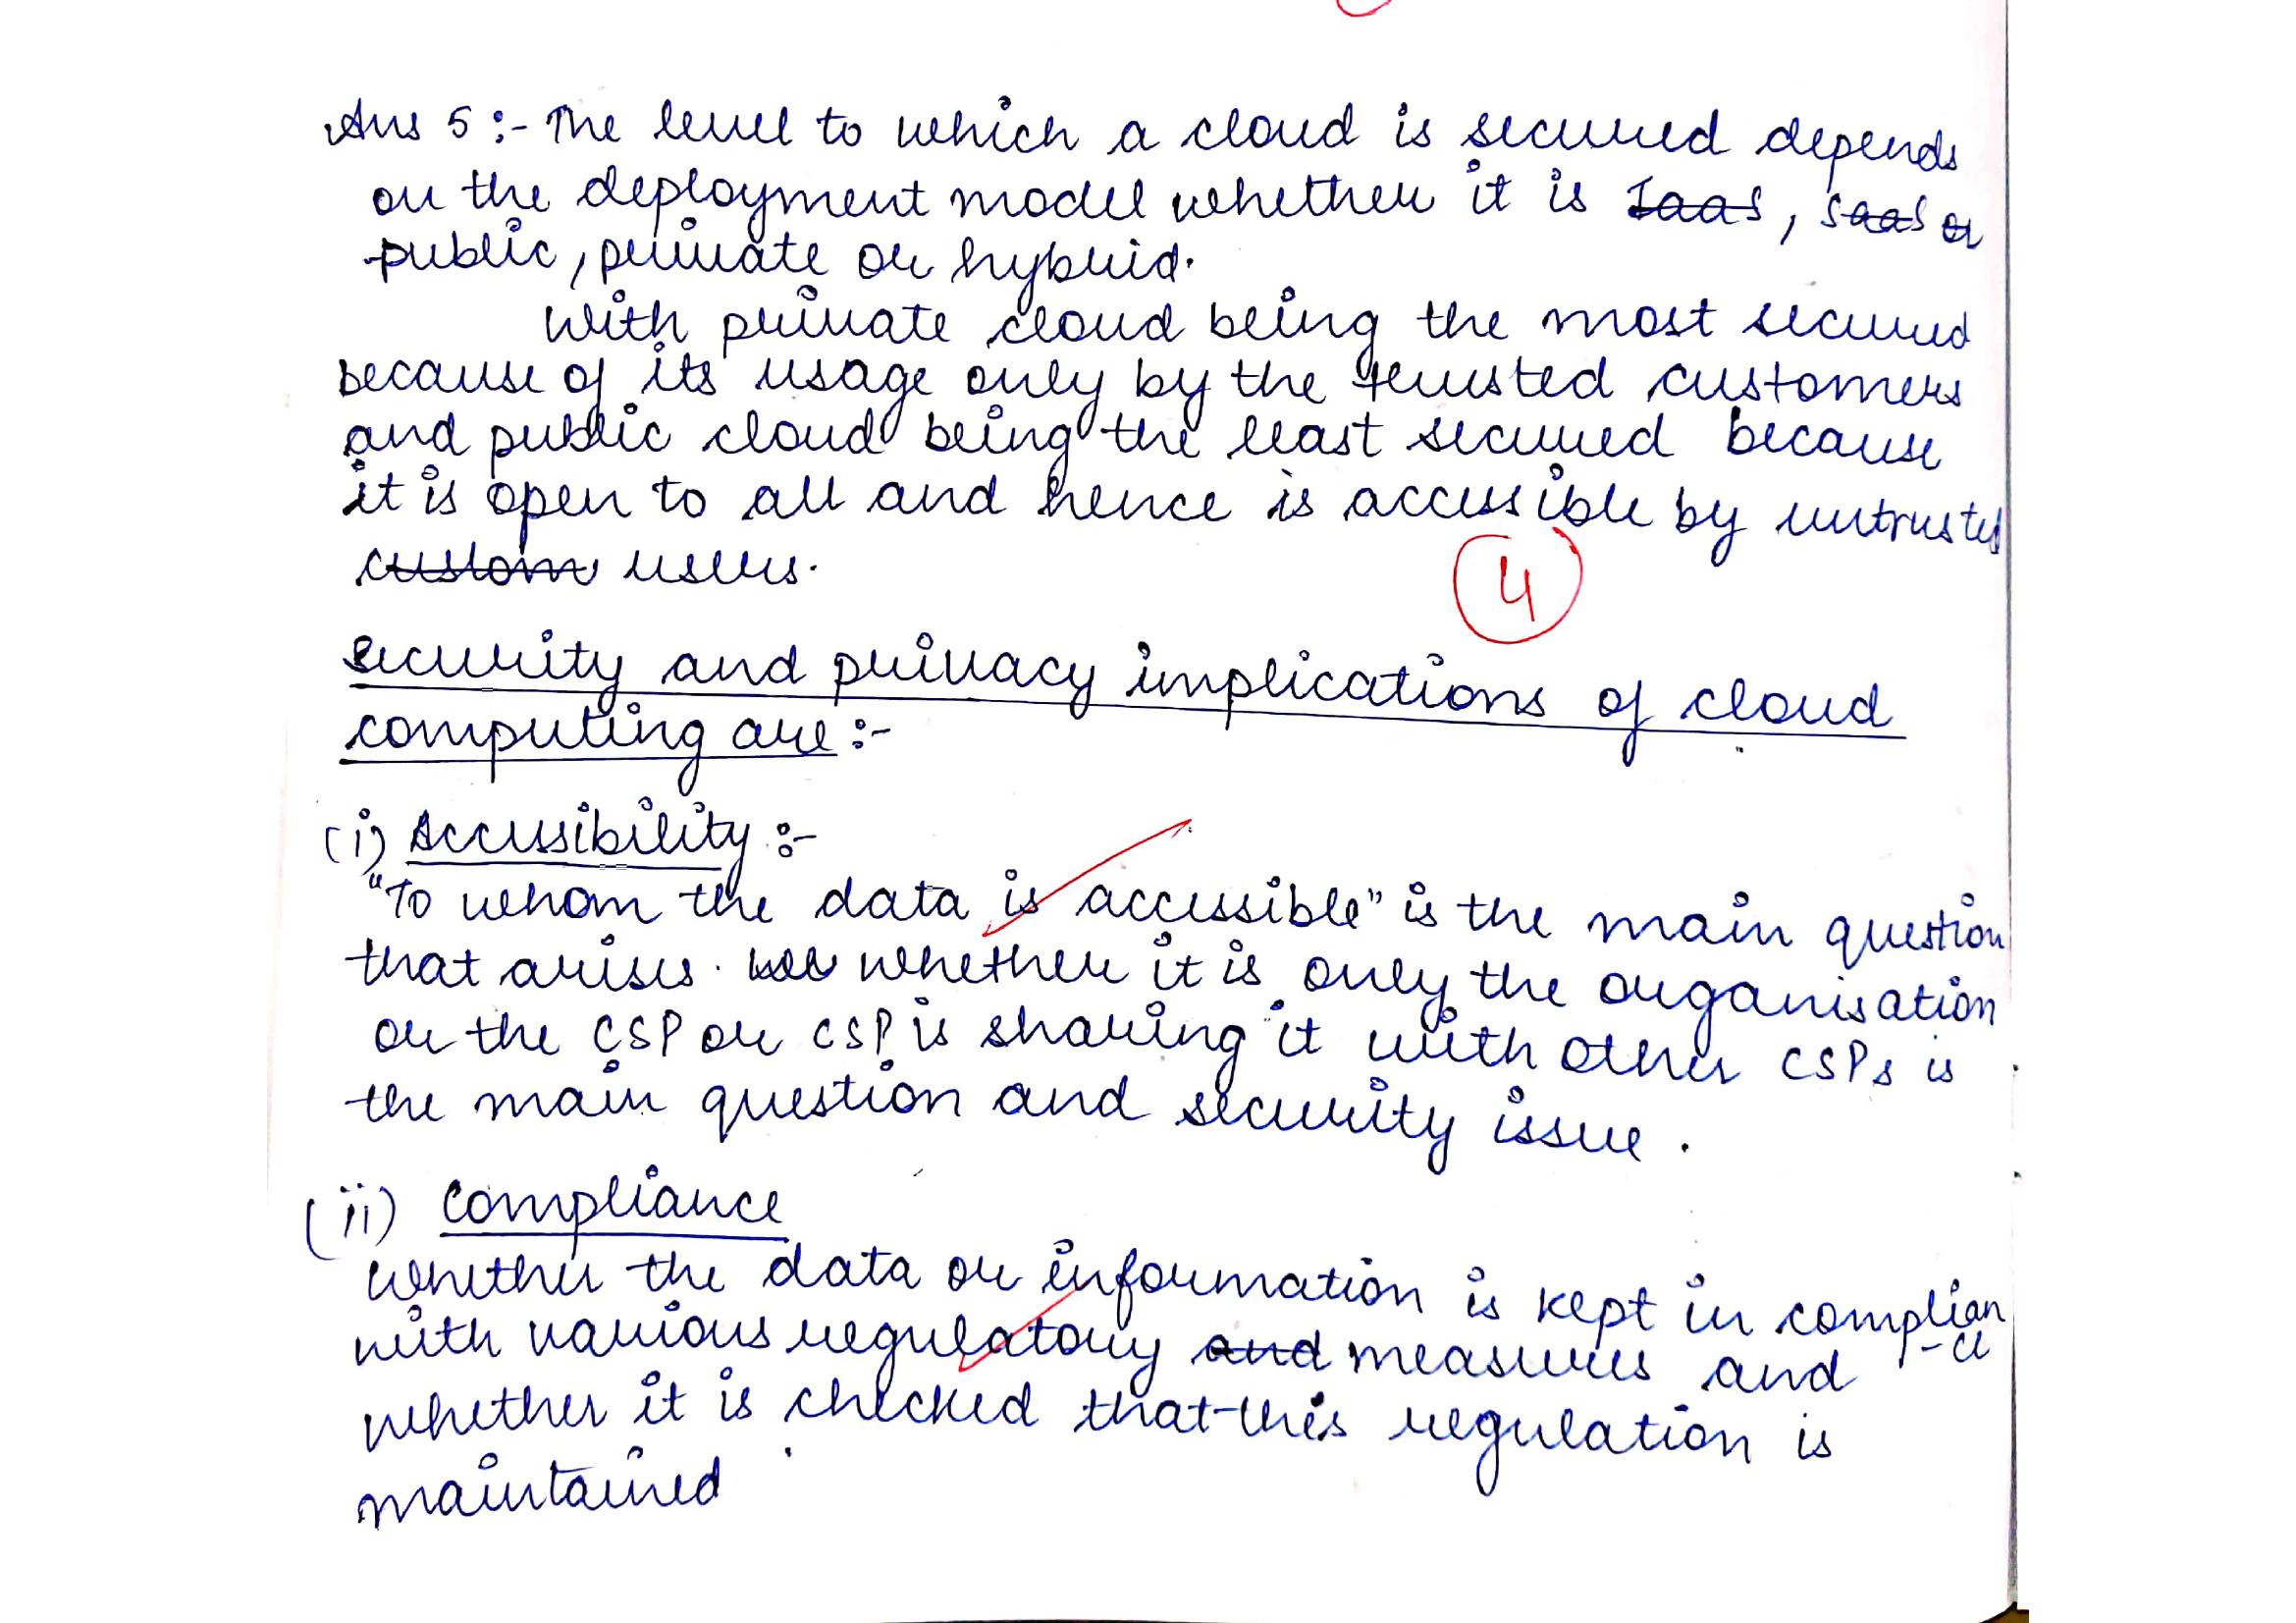 Ans 5 :- The level to which a cloud is secured depends
on the deployment model whether it is Iaas, Saas or
public, private or hybrid.
With private cloud being the most secured
because of its usage only by the trusted customers
and public cloud being the least secured because
it is open to all and hence is accessible by untrusted
custom users.
4
Security and privacy implications of cloud
computing are :-
(i) Accessibility :-
"To whom the data is accessible" is the main question
that arises. whether it is only the organisation
or the CSP or CSP is sharing it with other CSPs is
the main question and security issue.
(ii) Compliance
Whether the data or information is kept in complian
-ce
with various regulatory and measures and
whether it is checked that this regulation is
maintained